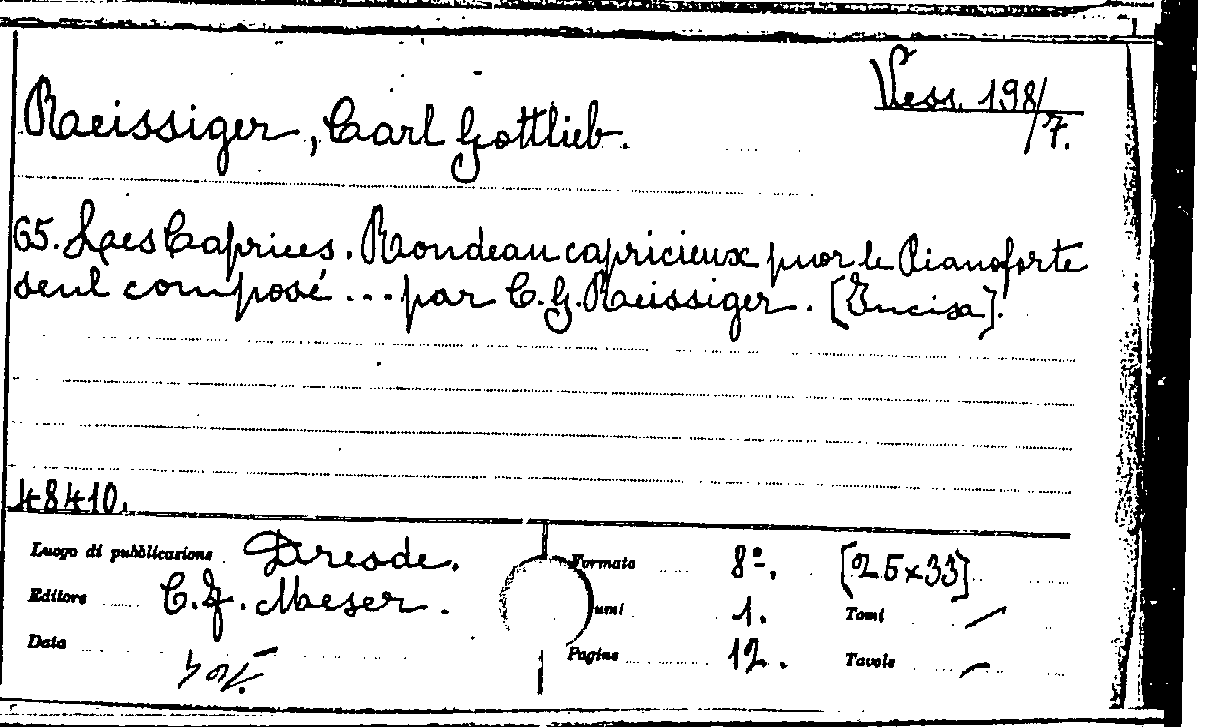 Vess. 198/7.
Raeissiger, Carl Gottlieb.
65. Les Caprices. Rondeau capricieux puor le Pianoforte
seul composé ... par C. G. Raeissiger. [Incisa].
48410.
Luogo di pubblicazione Dresde. Formato 8º. [25x33]
Editore C. F. Meser. umi 1. Tomi /
Data Pagine 12. Tavole /